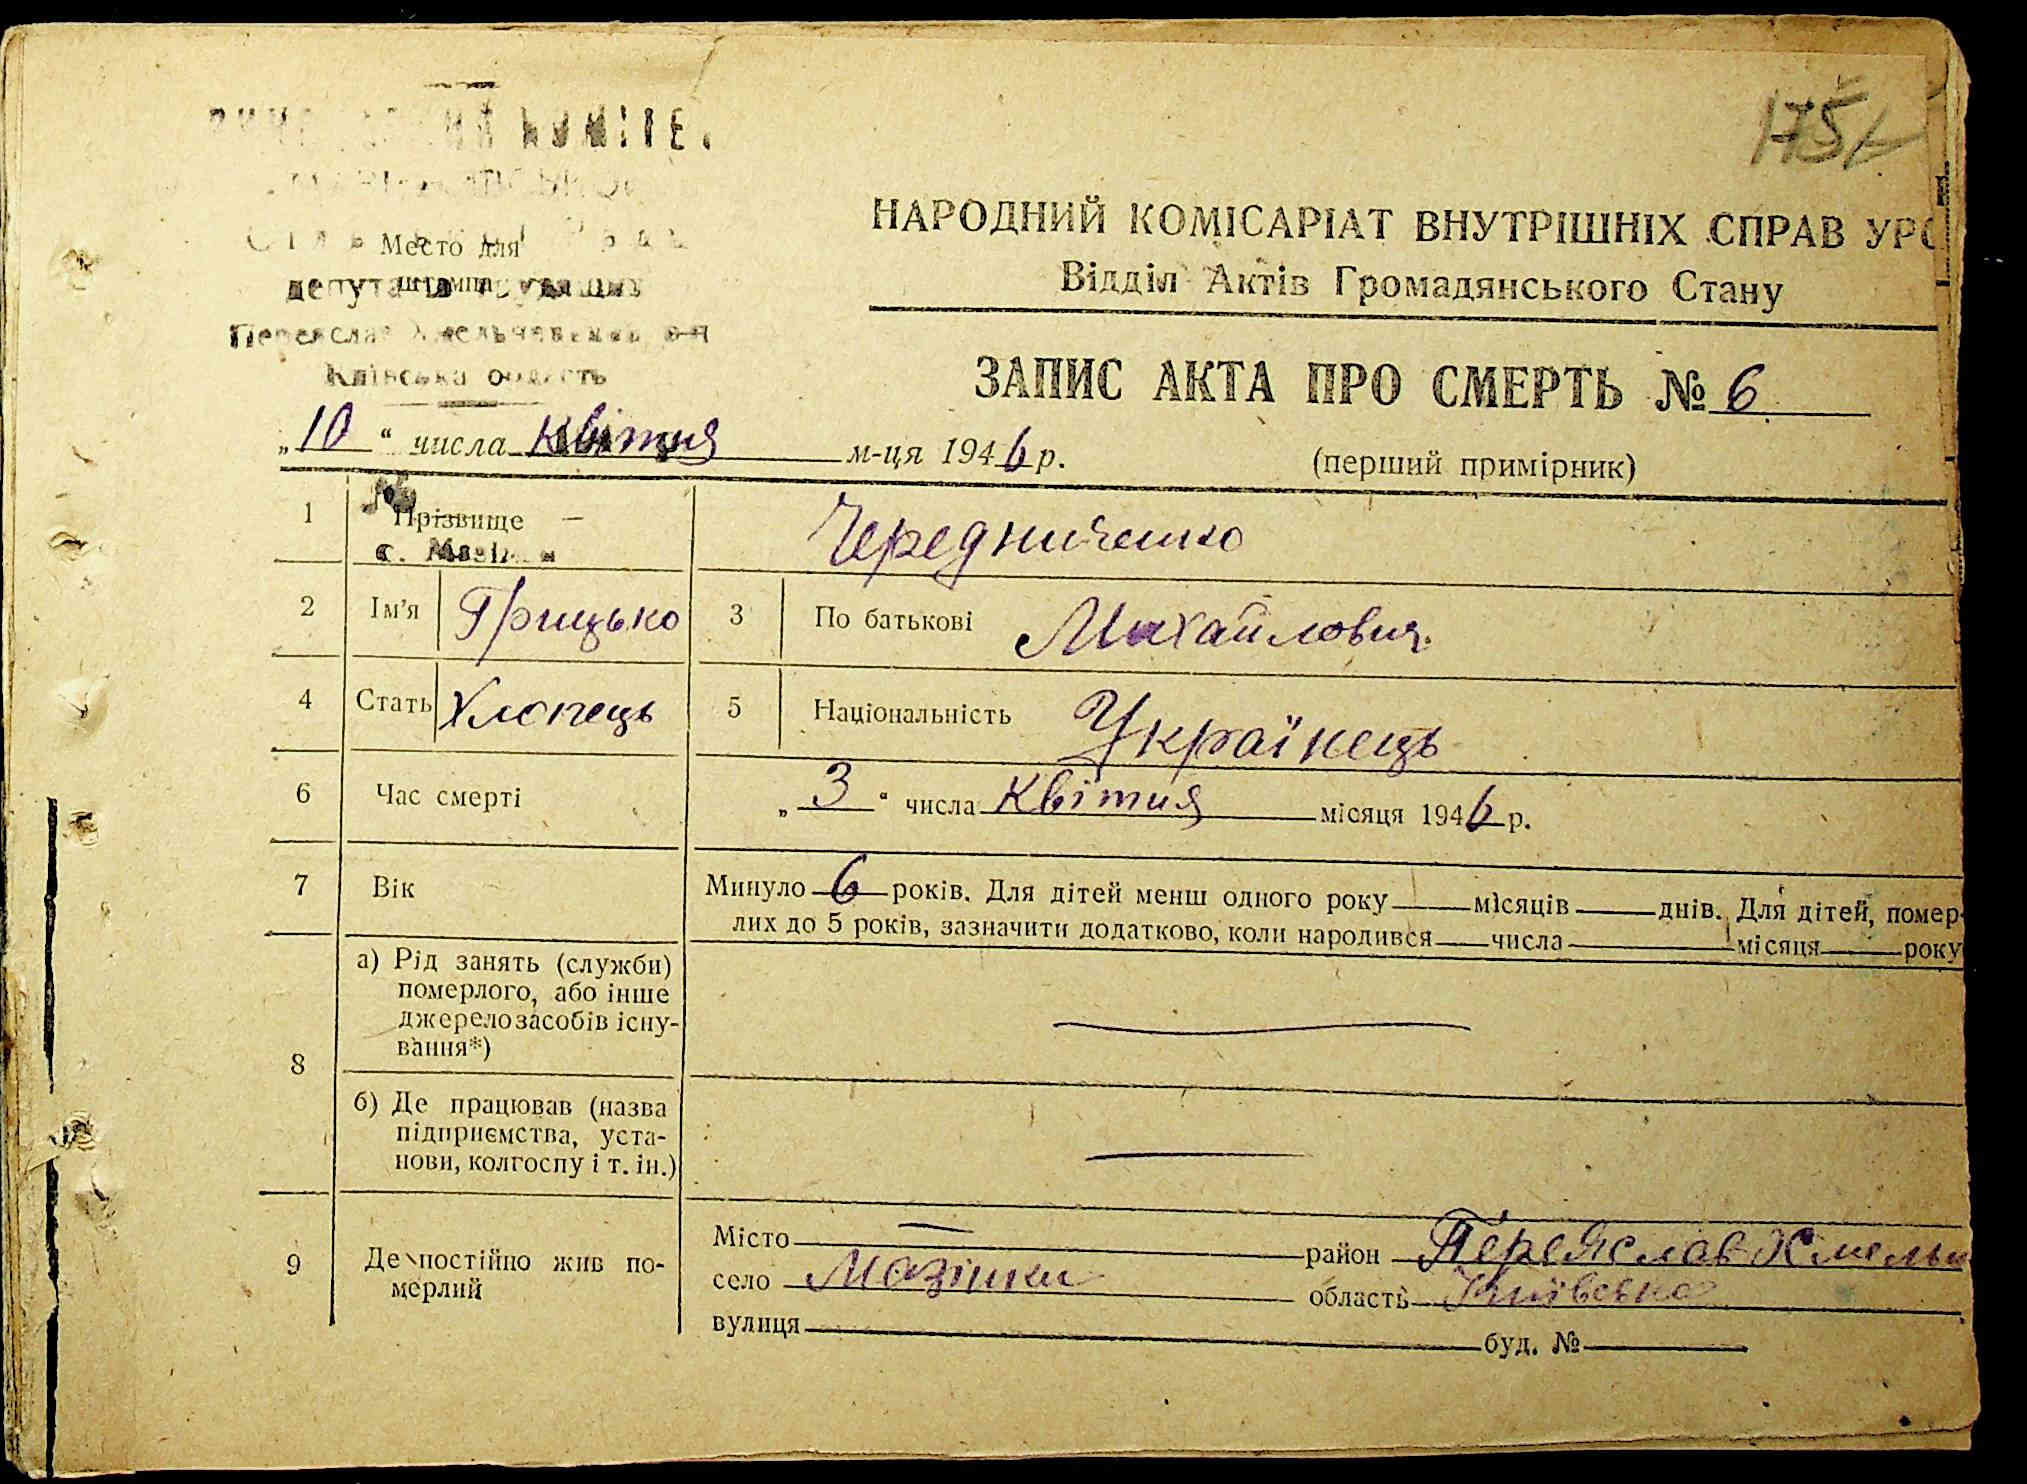 175
КОМІТЕ
Место для
штампа
депута
Київська область
НАРОДНИЙ КОМІСАРІАТ ВНУТРІШНІХ СПРАВ УРС
Відділ Актів Громадянського Стану
ЗАПИС АКТА ПРО СМЕРТЬ № 6
„10“ числа квітня м-ця 1946 р. (перший примірник)
1 Прізвище — Чередниченко
с.
2 Ім'я Грицько 3 По батькові Михайлович.
4 Стать Хлопець 5 Національність Українець
6 Час смерті „3“ числа Квітня місяця 1946 р.
7 Вік Минуло 6 років. Для дітей менш одного року місяців днів. Для дітей, помер-
лих до 5 років, зазначити додатково, коли народився числа місяця року
8 а) Рід занять (служби)
померлого, або інше
джерело засобів існу-
вання*)
б) Де працював (назва
підприємства, уста-
нови, колгоспу і т. ін.)
9 Де постійно жив по-
мерлий
Місто — район Переяслав Хмельн
село Мазінки область Київська
вулиця буд. №